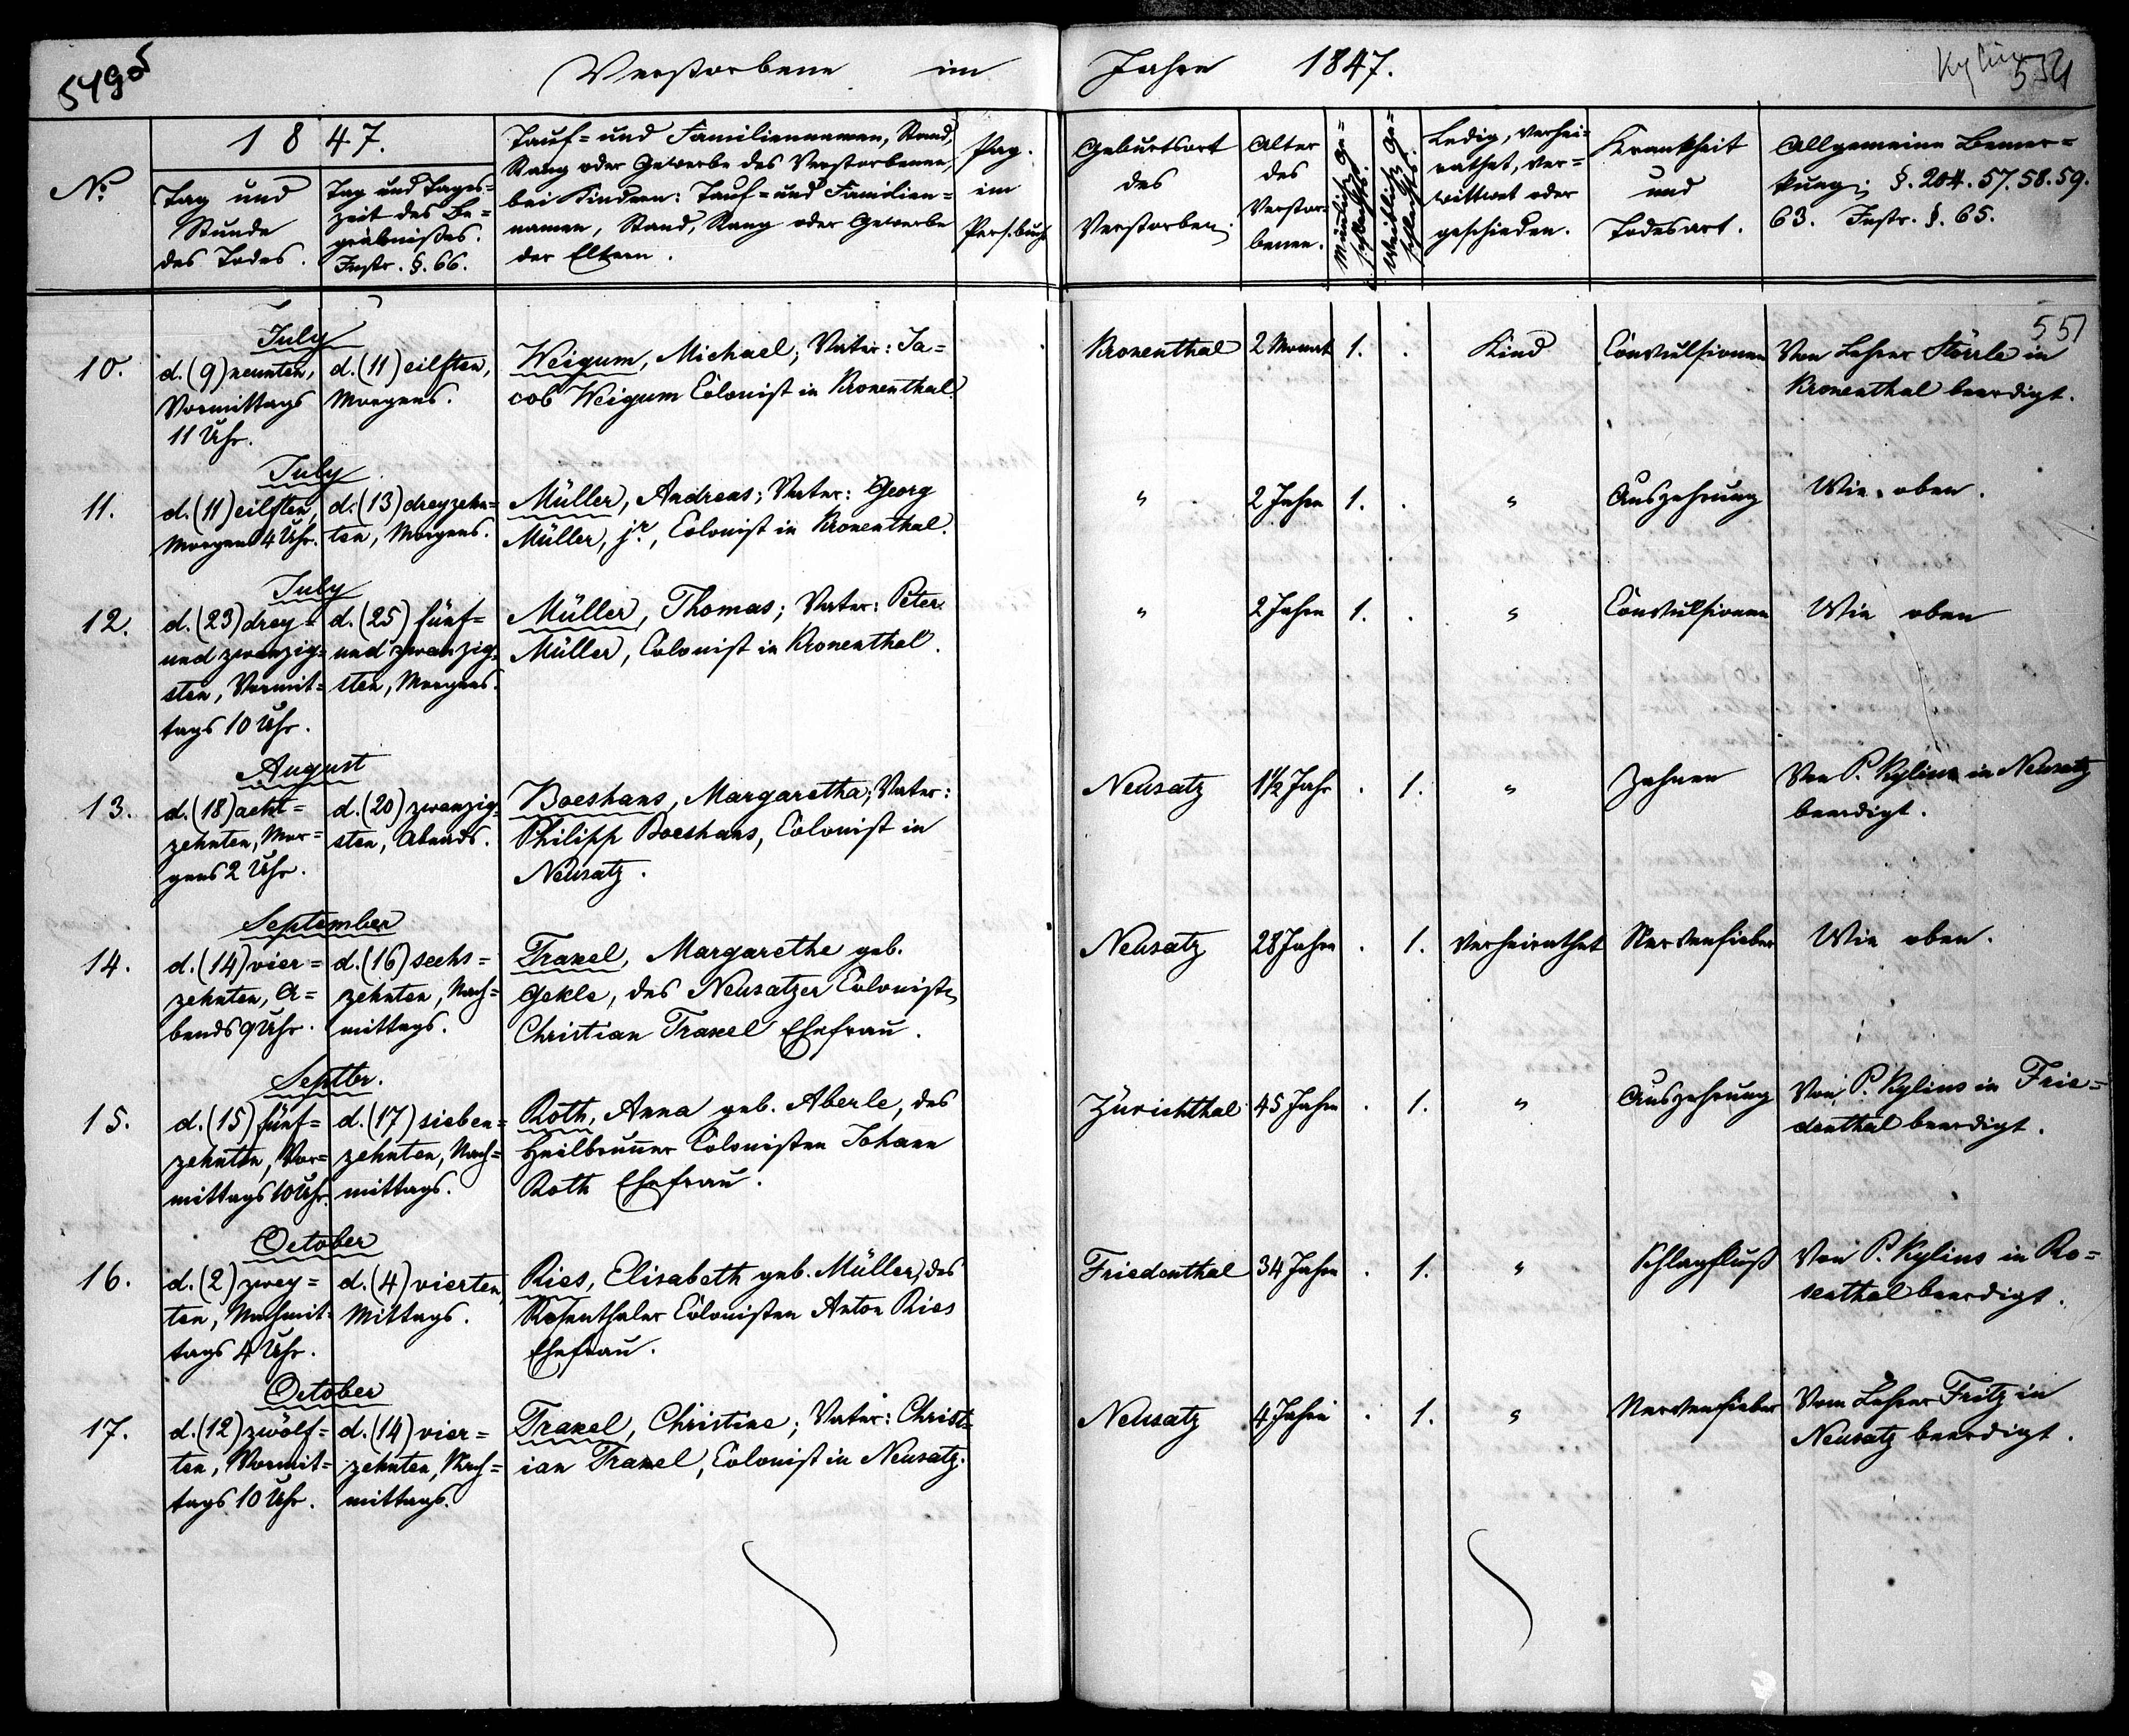 Verstorbene im Jahre 1847.
551
No.
1847.
Tag und
Stunde
des Todes.
Tag und Tages=
zeit des Be=
gräbnißes.
Instr. §. 66.
Tauf= und Familiennamen, Stand,
Rang oder Gewerbe des Verstorbenen,
bei Kindern: Tauf= und Familien=
namen, Stand, Rang oder Gewerbe
der Eltern.
Pag.
im
Pers. buch
Geburtsort
des
Verstorben.
Alter
des
Verstor=
benen.
Männlich Ge=
schlechts.
Weiblich Ge=
schlechts.
Ledig, verhei=
rathet, ver=
wittwet oder
geschieden.
Krankheit
und
Todesart.
Allgemeine Bemer=
kung; §. 204. 57. 58. 59.
63. Instr. §. 65.
10.
July
d. (9) neunten,
Vormittags
11 Uhr.
d. (11) eilften,
Morgens.
Weigum, Michael; Vater: Ja=
cob Weigum Colonist in Kronenthal
Kronenthal
2 Monat
1.
.
Kind
Convulsionen
Von Lehrer Störrle in
Kronenthal beerdigt.
11.
July
d. (11) eilften,
Morgens 4 Uhr.
d. (13) dreyzehn=
ten, Morgens.
Müller, Andreas; Vater: Georg
Müller, jr., Colonist in Kronenthal.
"
2 Jahre
1.
.
"
Auszehrung
Wie oben.
12.
July
d. (23) drey=
und zwanzig=
sten, Vormit=
tags 10 Uhr.
d. (25) fünf=
und zwanzig=
sten, Morgens.
Müller, Thomas; Vater: Peter
Müller, Colonist in Kronenthal.
"
2 Jahre
1.
.
"
Convulsionen
Wie oben
13.
August
d. (18) acht=
zehnten, Mor=
gens 2 Uhr.
d. (20) zwanzig=
sten, Abends.
Boeshans, Margaretha; Vater:
Philipp Boeshans, Colonist in
Neusatz.
Neusatz
1½ Jahr
.
1.
"
Zahnen
Von P. Kylius in Neusatz
beerdigt.
14.
September
d. (14) vier=
zehnten, A=
bends 9 Uhr.
d. (16) sechs=
zehnten, Nach=
mittags.
Traxel, Margarethe geb.
Gekle, des Neusatzer Colonisten
Christian Traxel Ehefrau.
Neusatz
28 Jahre
.
1.
Verheirathet
Nervenfieber
Wie oben.
15.
Septbr.
d. (15) fünf=
zehnten, Vor=
mittags 10 Uhr.
d. (17) sieben=
zehnten, Nach=
mittags.
Roth, Anna geb. Aberle, des
Heilbrunner Colonisten Johann
Roth Ehefrau.
Zürichthal
45 Jahre
.
1.
"
Auszehrung
Von P. Kylius in Frie=
denthal beerdigt.
16.
October
d. (2) zwey=
ten, Nachmit=
tags 4 Uhr.
d. (4) vierten,
Mittags.
Ries, Elisabeth geb. Müller, des
Rosenthaler Colonisten Anton Ries
Ehefrau.
Friedenthal
34 Jahre
.
1.
"
Schlagfluß
Von P. Kylius in Ro=
senthal beerdigt.
17.
October
d. (12) zwölf=
ten, Vormit=
tags 10 Uhr.
d. (14) vier=
zehnten, Nach=
mittags.
Traxel, Christine; Vater: Christ=
ian Traxel, Colonist in Neusatz.
Neusatz
4 Jahre
.
1.
"
Nervenfieber
Vom Lehrer Fritz in
Neusatz beerdigt.